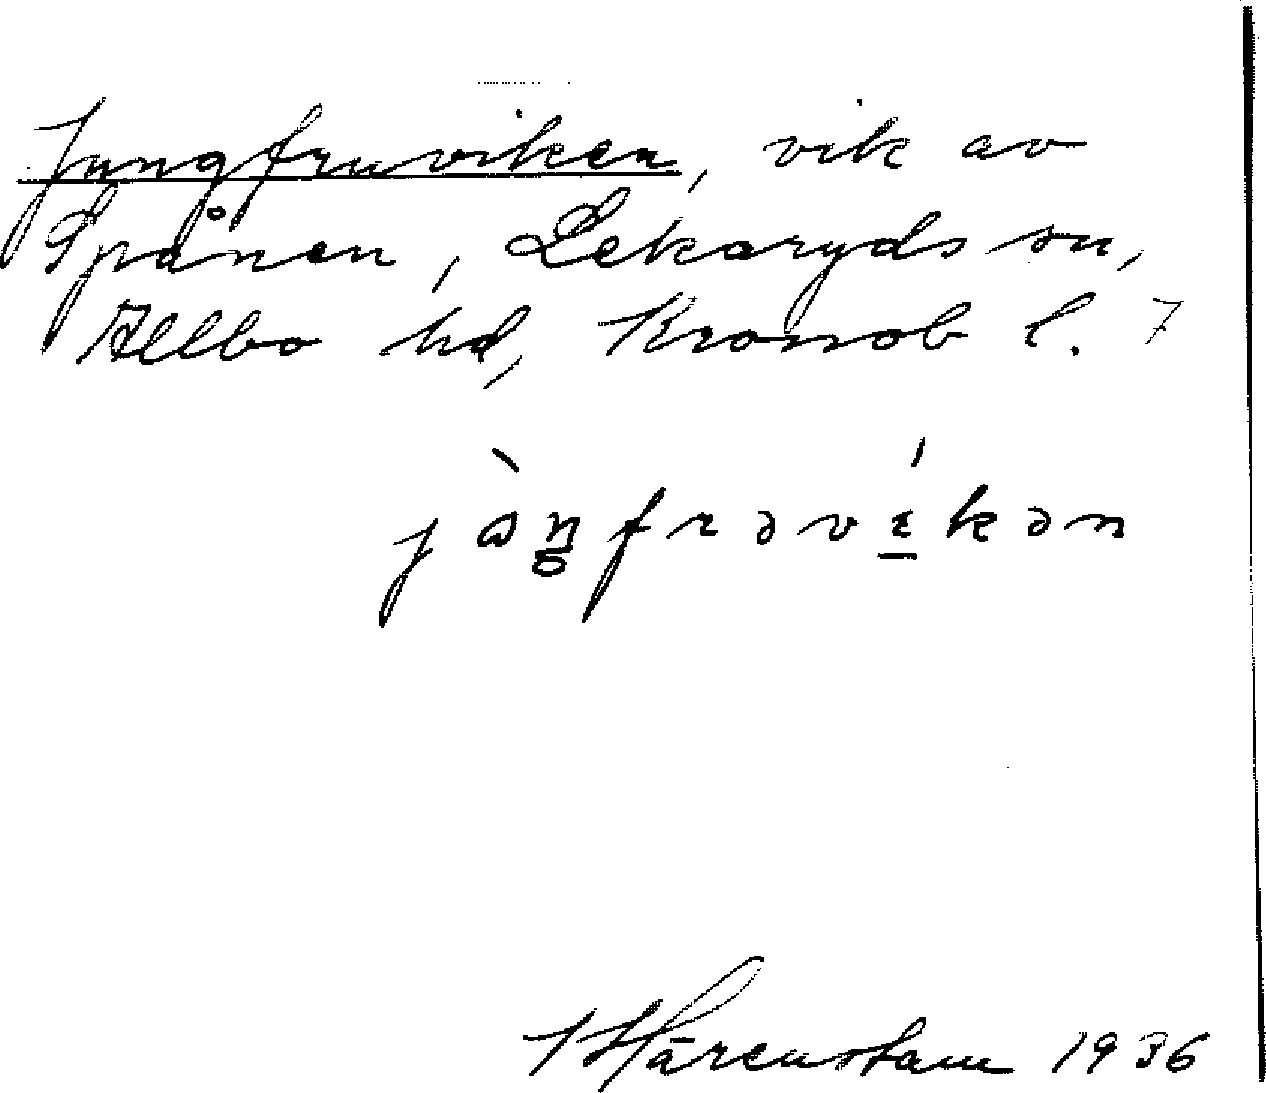 Jungfruviken, vik av
Spånen, Lekaryds sn,
Allbo hd, Kronob l. 7
jàŋfrəvíkən
Härenstam 1936